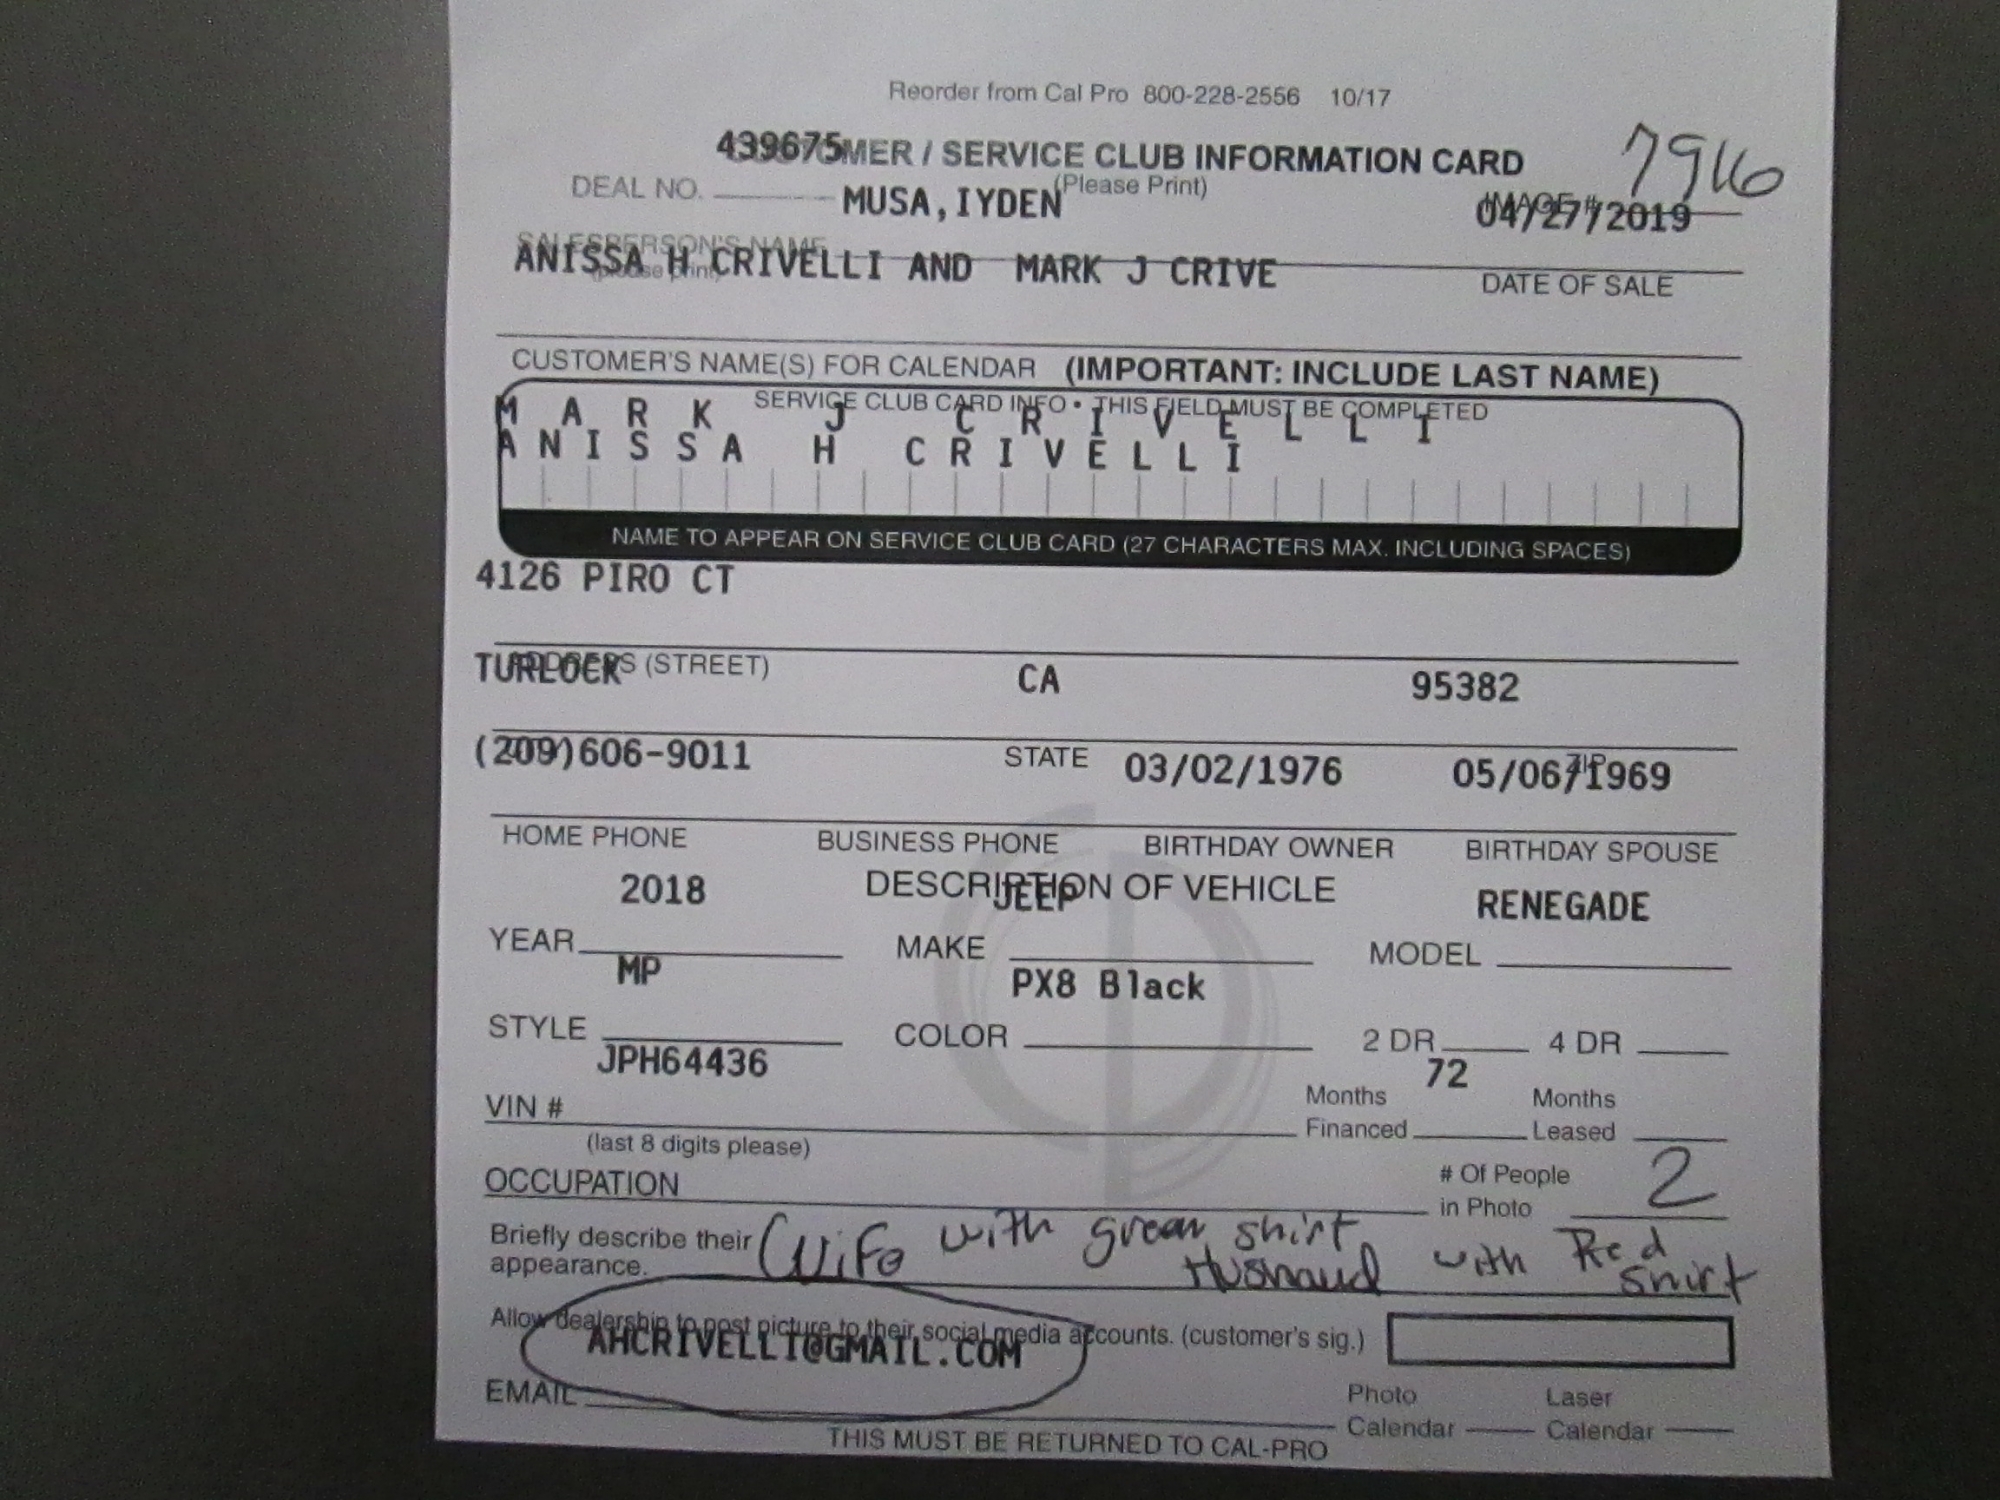 Reorder from Cal Pro 800-228-2556 10/17
439675MER / SERVICE CLUB INFORMATION CARD 7916
DEAL NO. MUSA,IYDEN (Please Print) IMAGE #
04/27/2019
SALESPERSON'S NAME
(please print)
ANISSA H CRIVELLI AND MARK J CRIVE
DATE OF SALE
CUSTOMER'S NAME(S) FOR CALENDAR (IMPORTANT: INCLUDE LAST NAME)
SERVICE CLUB CARD INFO • THIS FIELD MUST BE COMPLETED
MARK J CRIVELLI
ANISSA H CRIVELLI
NAME TO APPEAR ON SERVICE CLUB CARD (27 CHARACTERS MAX. INCLUDING SPACES)
4126 PIRO CT
ADDRESS (STREET)
TURLOCK CA 95382
STATE ZIP
(209)606-9011 03/02/1976 05/06/1969
HOME PHONE BUSINESS PHONE BIRTHDAY OWNER BIRTHDAY SPOUSE
DESCRIPTION OF VEHICLE
2018 JEEP RENEGADE
YEAR MAKE MODEL
MP PX8 Black
STYLE COLOR 2 DR 4 DR
JPH64436 72
VIN # Months Financed Months Leased
(last 8 digits please)
OCCUPATION # Of People in Photo 2
Briefly describe their appearance. Wife with green shirt
Husband with Red shirt
Allow dealership to post picture to their social media accounts. (customer's sig.)
AHCRIVELLI@GMAIL.COM
EMAIL Photo Calendar Laser Calendar
THIS MUST BE RETURNED TO CAL-PRO